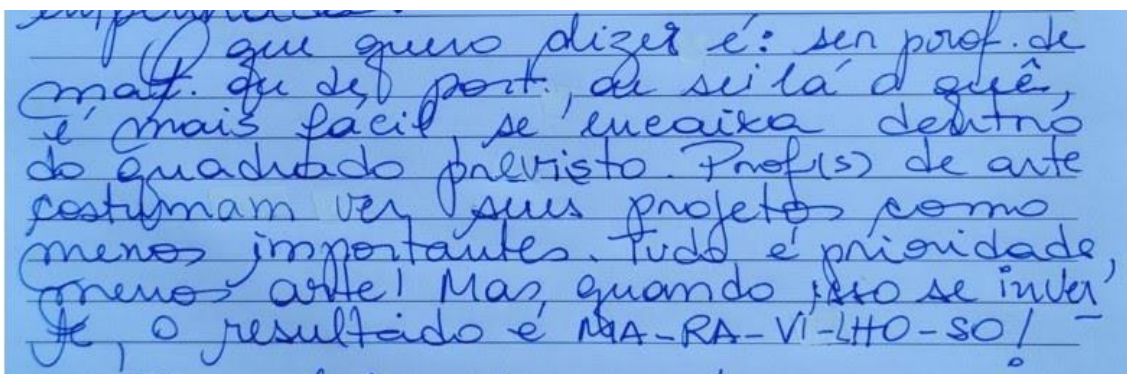 O que quero dizer é: ser prof. de
mat. ou de port., ou sei lá o quê,
é mais fácil, se encaixa dentro
do quadrado previsto. Prof(s) de arte
costumam ver seus projetos como
menos importantes. Tudo é prioridade,
menos arte! Mas, quando isso se inver-
te, o resultado é MA-RA-VI-LHO-SO!